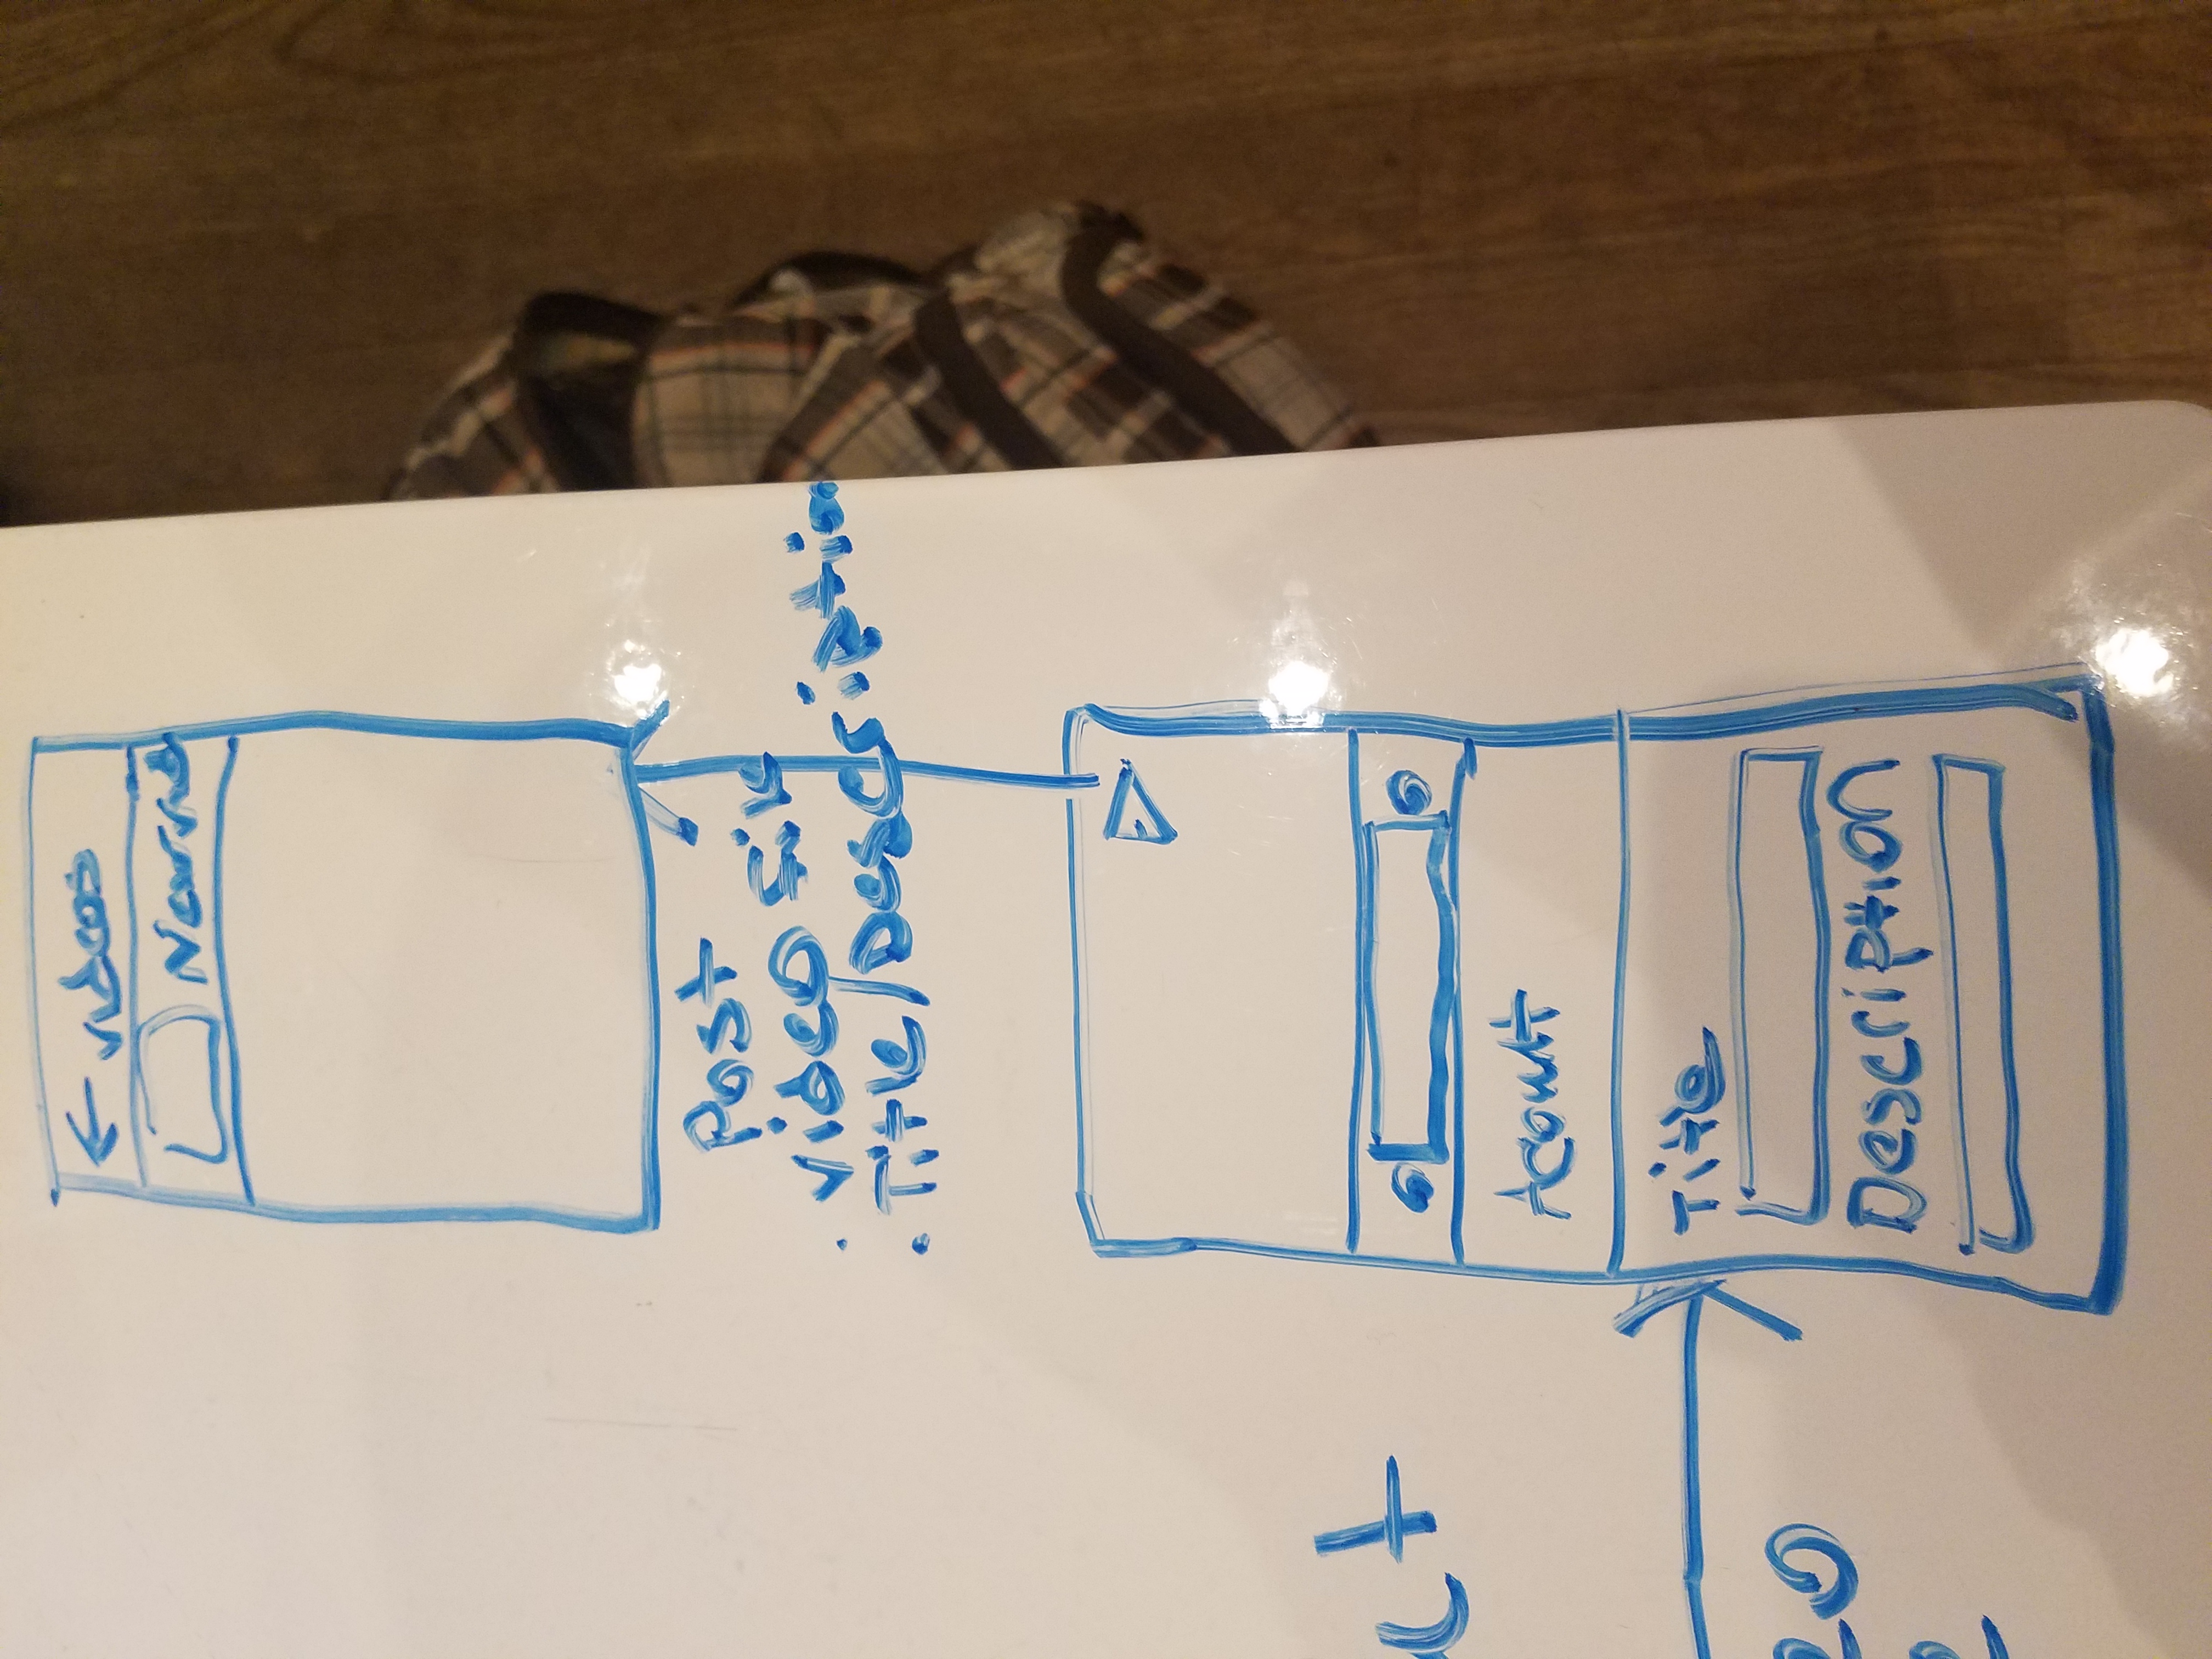 ← videos
New vid
Post
. video file
. Title/Description
Acount
Title
Description